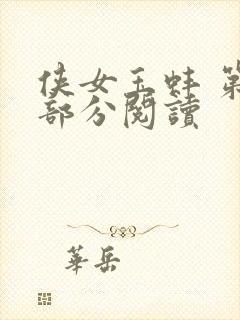 侠女玉蚌 第
部分閱讀
華岳